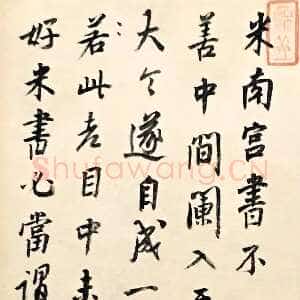 米南宫書不
善中間闌入
大令遂自成一
若此者目中未
好米書必當谓
Shufawang.CN